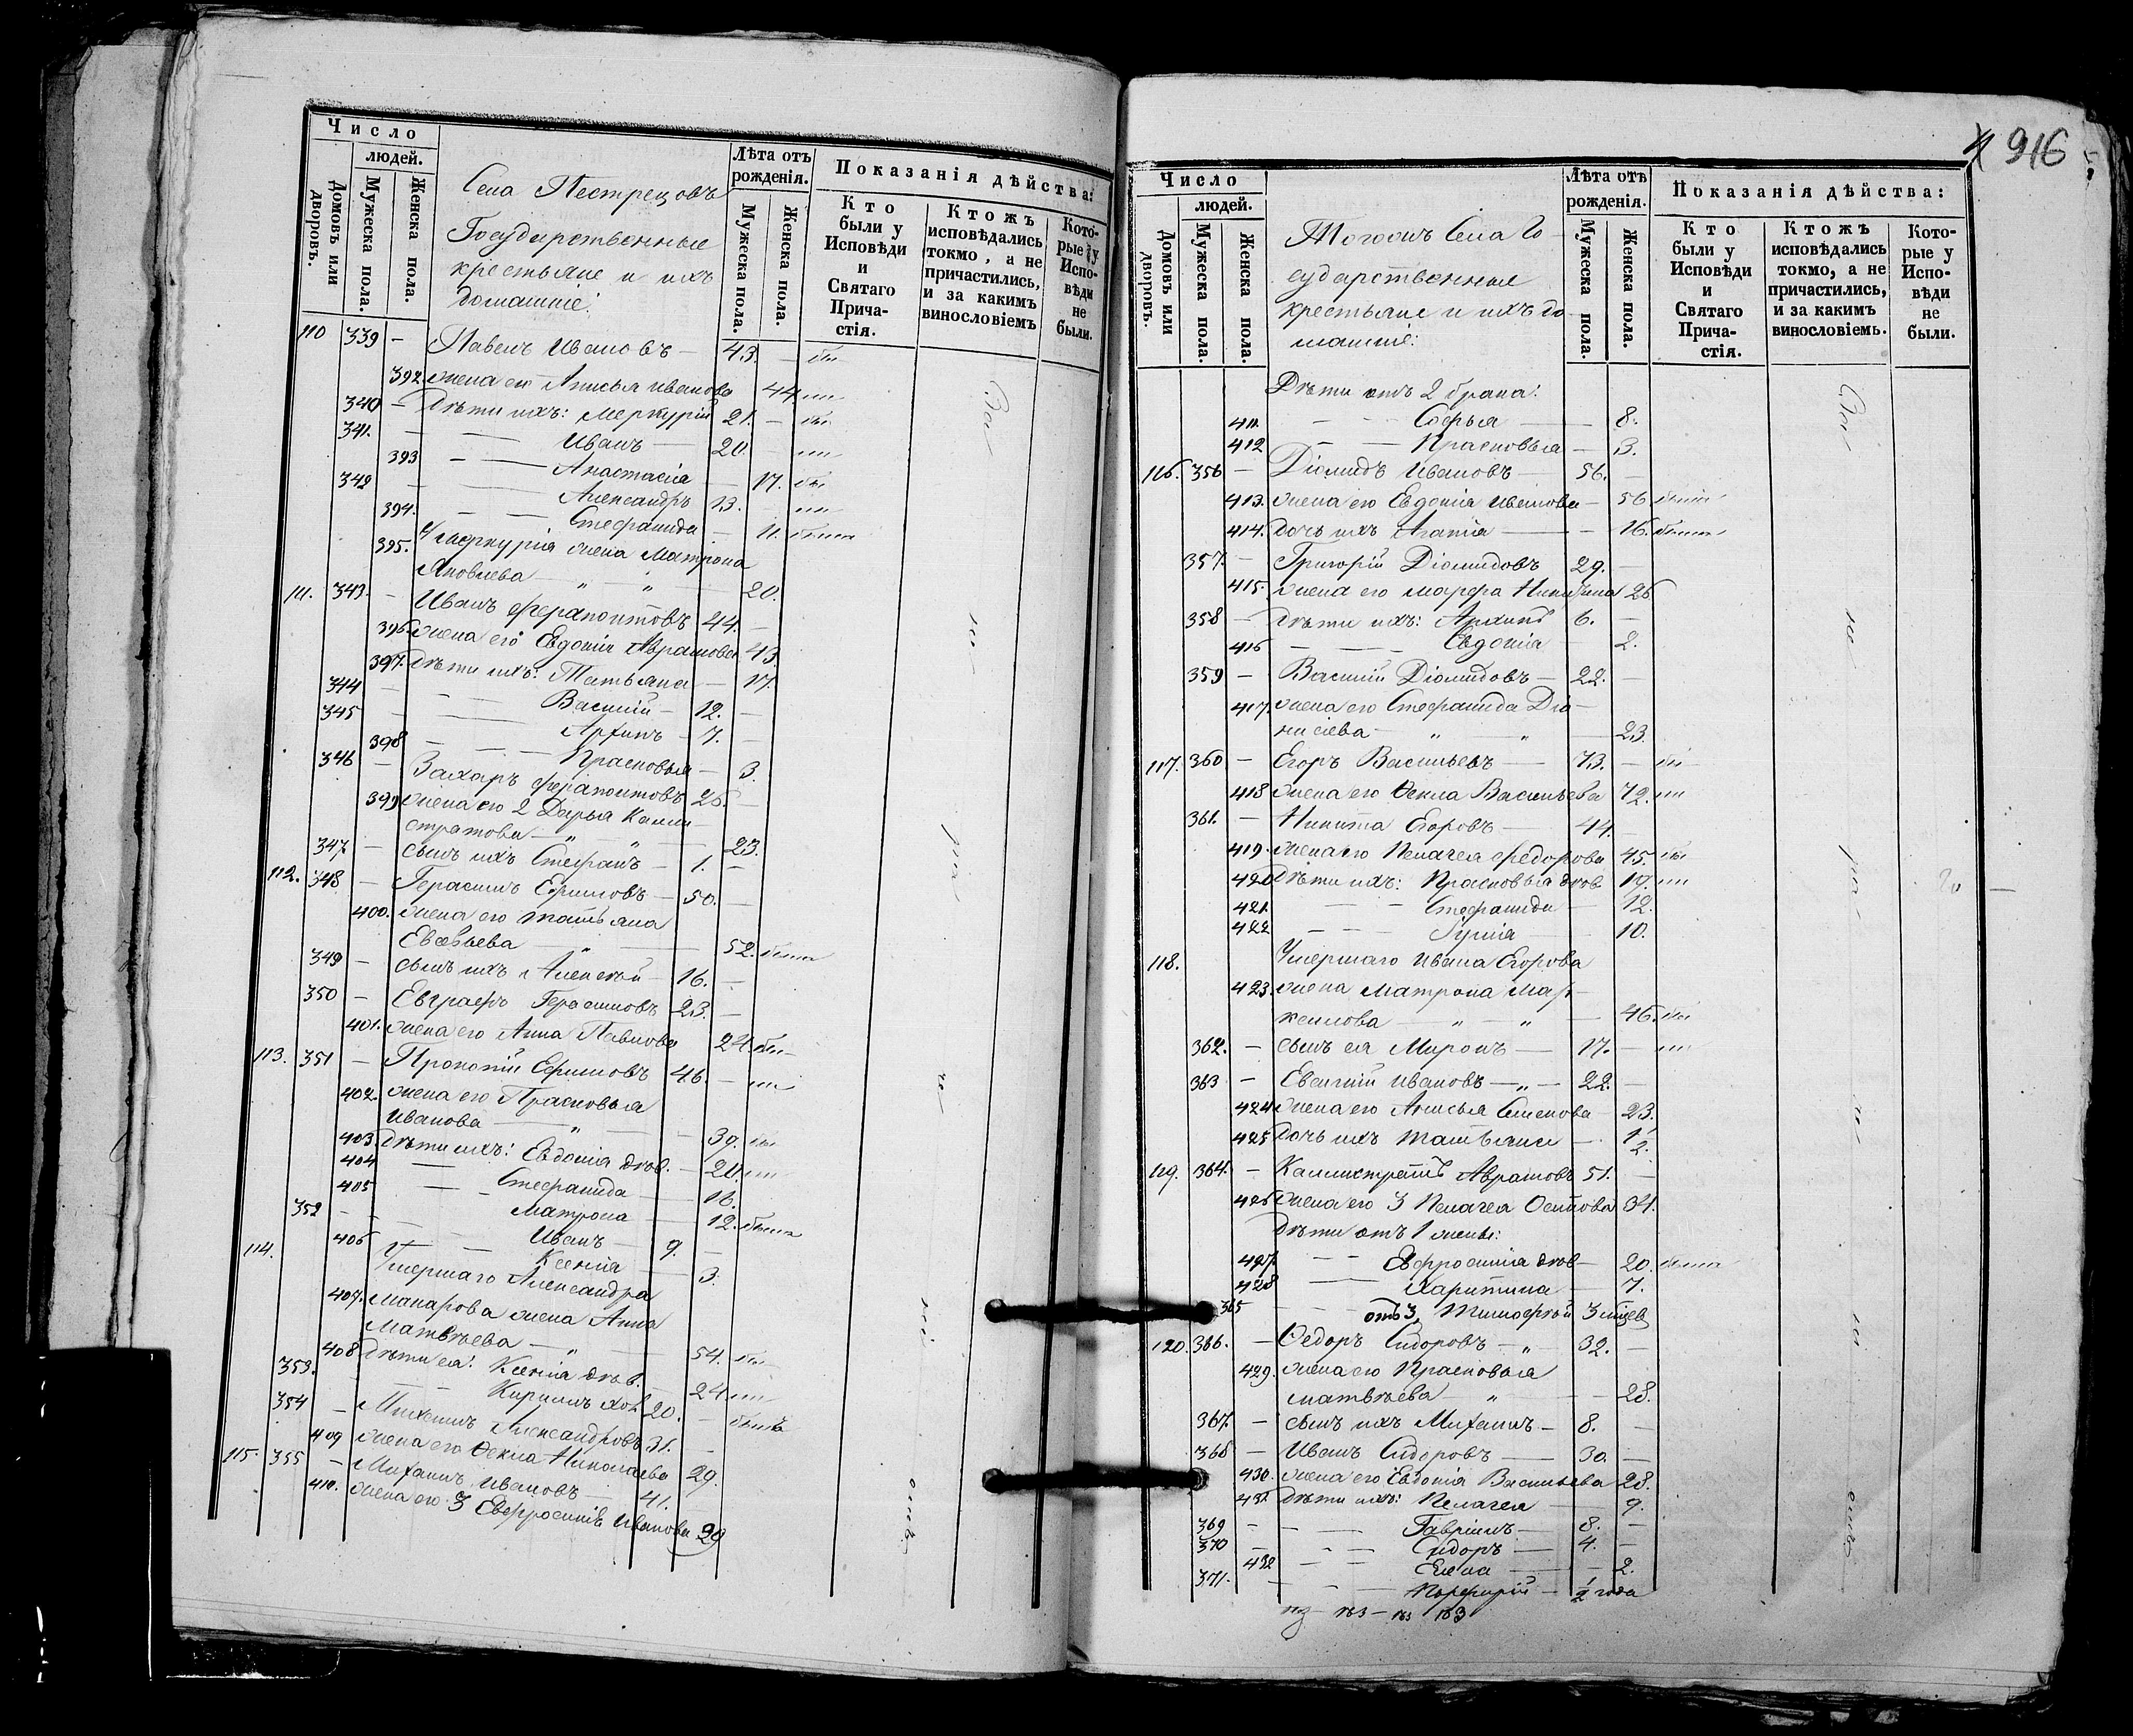 Число
людей.
Домовъ или дворовъ.
Мужеска пола.
Женска пола.
Села Пестрецовъ
Государственные
крестьяне и ихъ
домашніе:
Лѣта отъ рожденія.
Мужеска пола.
Женска пола.
Показанія дѣйства:
Кто были у Исповѣди и Святаго Причастія.
Ктожъ исповѣдались токмо, а не причастились, и за какимъ винословіемъ
Которые у Исповѣди не были.
110 339 – Павелъ Ивановъ – 43. – бы
392. жена его Анисья Иванова 44
340 – Дѣти ихъ: Меркурій 21. – бы
341. – Иванъ – 20.
393 – Анастасія – 17. бы
342 – Александръ 13.
394. – Стефанида – 11.
395. Меркурія жена Матрона
Яковлева – „ – 20.
111. 343. – Иванъ Ферапонтовъ 44. –
396. жена его Евдокія Абрамова 43
397. Дѣти ихъ: Татьяна – 17.
344 – Василій – 12. –
345 – Архипъ – 7. –
398 – Прасковья – 3.
346 – Захаръ Ферапонтовъ 26. –
399 жена его 2 Дарья Калли
стратова – „ – 23.
347. – сынъ ихъ Стефанъ – 1. –
112. 348 – Герасимъ Ефимовъ – 50. –
400. жена его Татьяна
Евсевьева – „ – 52. была
349 – сынъ ихъ Алексѣй – 16. –
350 – Евграфъ Герасимовъ 23. –
401. жена его Анна Павлова 24. бы
113. 351 – Прокопій Ефимовъ 46. –
402. жена его Прасковья
Иванова – „ – 39. бы
403. Дѣти ихъ: Евдокія дѣв. – 20.
404 – Стефанида – 16.
405 – Матрона – 12. была
352 – Иванъ – 9. –
406 – Ксенія – 3.
114. Умершаго Александра
407. Макарова жена Анна
Матвѣева – „ – 54. бы
408 Дѣти ея: Ксенія дѣв. – 24
353. – Кирилъ хол 20. –
354 – Михаилъ Александровъ 31. –
409 жена его Ѳекла Николаева 29.
115. 355 – Михаилъ Ивановъ – 41. –
410. жена его 3 Евфросинія Иванова 29
916
Число
людей.
Домовъ или дворовъ.
Мужеска пола.
Женска пола.
Тогожъ Села Го-
сударственные
крестьяне и ихъ до-
машніе:
Лѣта отъ рожденія.
Мужеска пола.
Женска пола.
Показанія дѣйства:
Кто были у Исповѣди и Святаго Причастія.
Ктожъ исповѣдались токмо, а не причастились, и за какимъ винословіемъ.
Которые у Исповѣди не были.
Дѣти отъ 2 брака:
411. – Софья – 8.
412 – Прасковья – 3.
116. 356 – Діомидъ Ивановъ – 56. –
413. жена его Евдокія Иванова – 56
414. дочь ихъ Агапія – 16.
357. – Григорій Діомидовъ 29. –
415. жена его Марфа Никитина 26
358 – Дѣти ихъ: Архипъ 6. –
416 – Евдокія – 2.
359 – Василій Діомидовъ – 22. –
417. жена его Стефанида Діо-
нисіева – „ – „ – 23.
117. 360 – Егоръ Васильевъ – 73. – бы
418 жена его Ѳекла Васильева 72.
361. – Никита Егоровъ – 44. –
419. жена его Пелагея Федорова 45. бы
420 Дѣти ихъ: Прасковья дѣв. 17.
421. – Стефанида – 12.
422 – – 10.
118. Умершаго Ивана Егорова
423. жена Матрона Мар-
келлова – „ – „ – 46. бы
362. – сынъ ея Миронъ – 17. –
363 – Евсигній Ивановъ – „ – 22. –
424 жена его Анисья Семенова – 23.
425 дочь ихъ Татьяна – 1/2.
119. 364. – Каллистратъ Абрамовъ 51. –
426 жена его 3 Пелагея Осипова 34.
Дѣти отъ 1 жены:
427. – Евфросинія дѣв – 20. была
428 – Харитина – 7.
365 – отъ 3, Тимофей 3 мѣсяц
120. 366. – Ѳедоръ Сидоровъ – „ – 32. –
429. жена его Прасковья
Матвѣева – „ – 28.
367. – сынъ ихъ Михаилъ – 8. –
368 – Иванъ Сидоровъ – 30. –
430. жена его Евдокія Васильева 28.
431 Дѣти ихъ: Пелагея – 9.
369 – Гавріилъ – 8. –
370 – Сидоръ – 4. –
432 – Елена – 2.
371. – Порфирій – 1/2 года